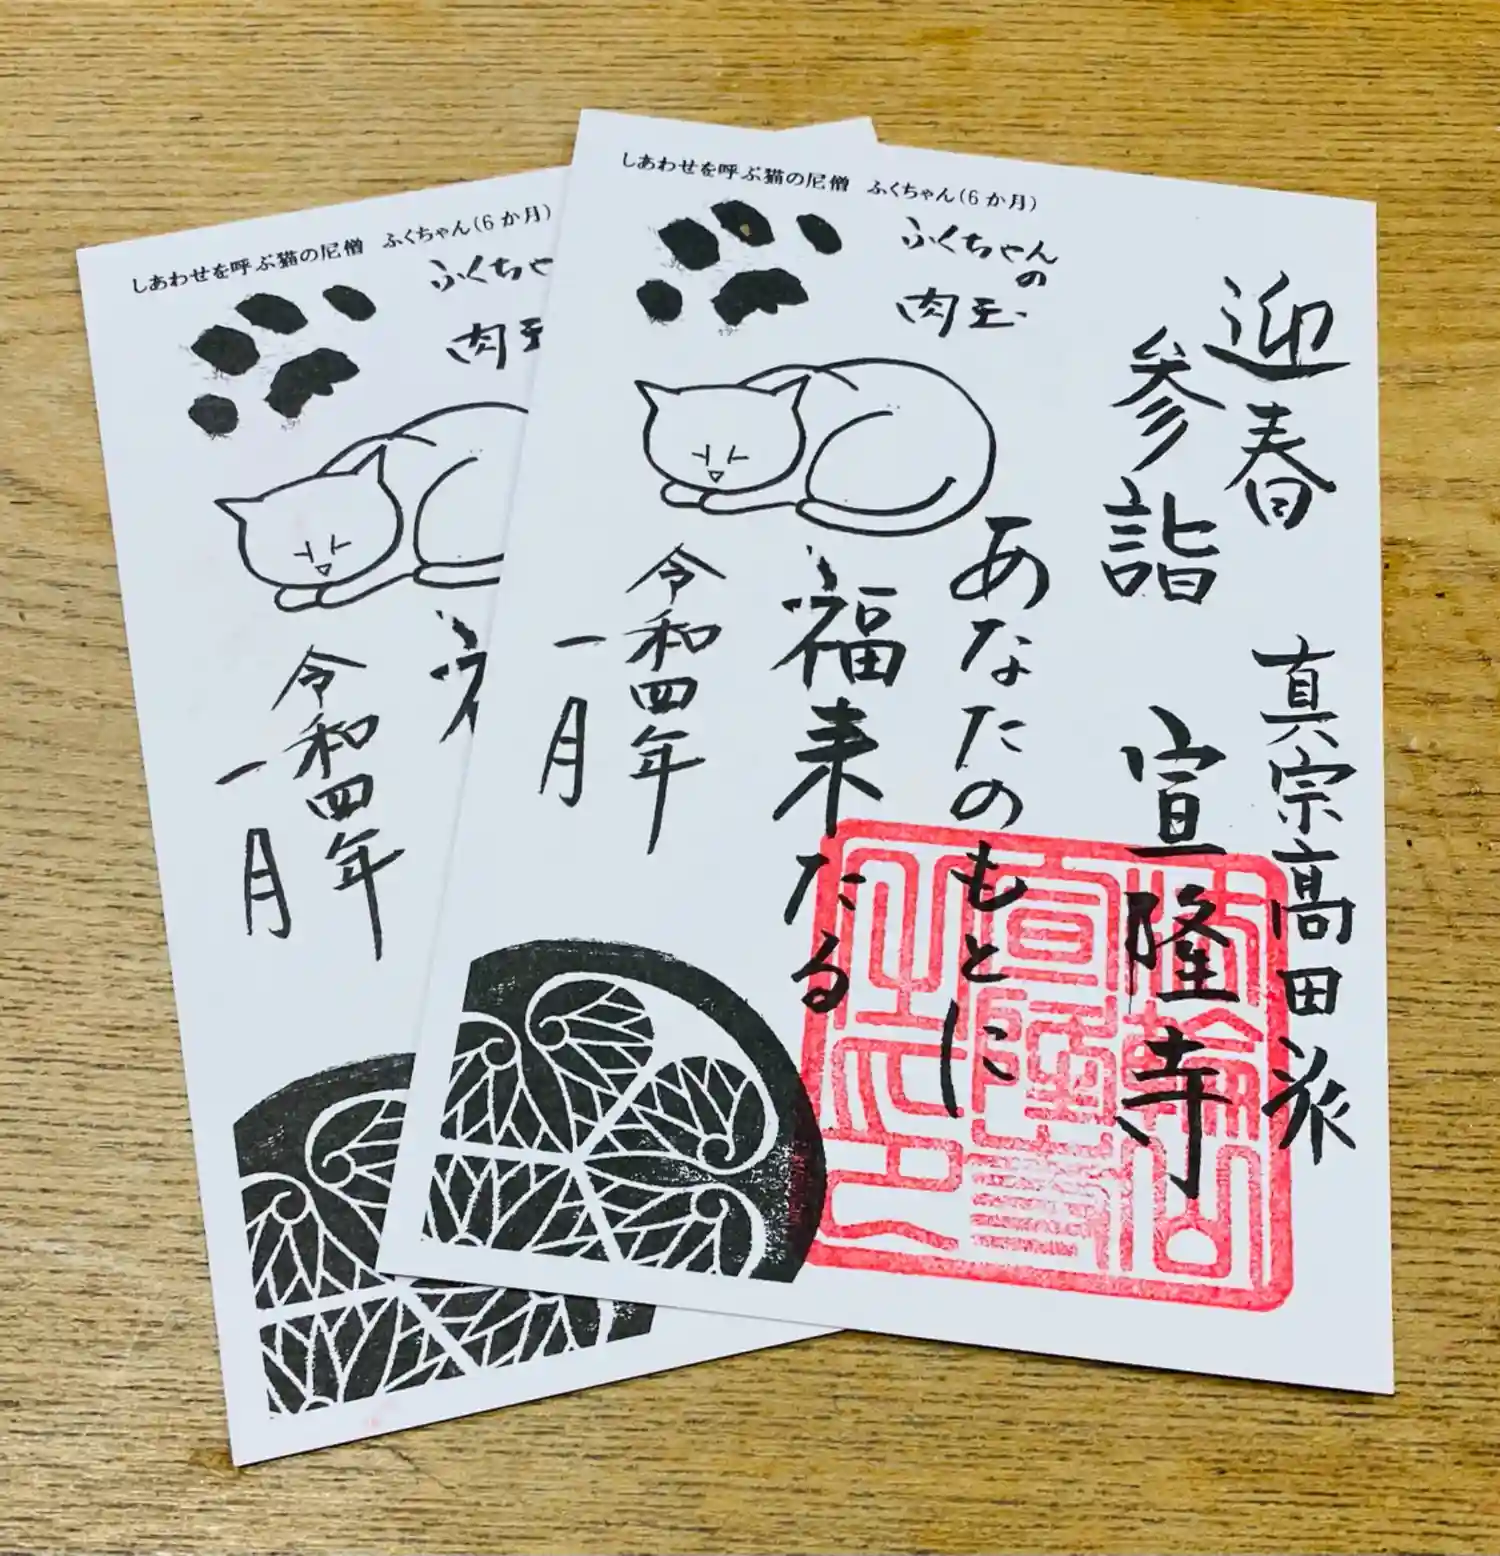 しあわせを呼ぶ猫の尼僧 ふくちゃん(6か月)
ふくちゃんの
肉玉
迎春
参詣
真宗高田派
宣隆寺
あなたのもとに
福来たる
令和四年
一月
宣隆寺
之印
しあわせを呼ぶ猫の尼僧 ふくちゃん(6か月)
ふくちゃ
肉玉
令和四年
一月